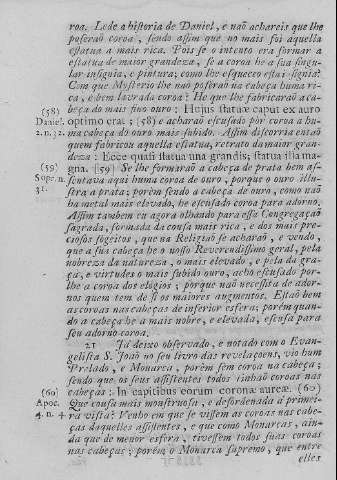 roa. Lede a historia de Daniel, e naõ achareis que lhe
poseraõ coroa, sendo assim que no mais foi aquella
estatua a mais rica. Pois se o intento era formar a
estatua de maior grandeza, se a coroa he a sua singu-
lar insignia, e pintura; como lhe esqueceo esta insignia?
Com que Mysterio lhe naõ poseraõ na cabeça huma ri-
ca, e bem lavrada coroa? He que lhe fabricaraõ a ca-
beça do mais fino ouro: Hujus statuæ caput ex auro
(58)
Daniel.
2. n. 32.
optimo erat: (58) e acharaõ escusado pôr coroa a hu-
ma cabeça do ouro mais subido. Assim discorria entaõ
quem fabricou aquella estatua, retrato da maior gran-
deza: Ecce quasi statua una grandis; statua illa ma-
(59)
Supr. n.
31.
gna. (59) Se lhe formaraõ a cabeça de prata bem as-
sentava aqui huma coroa de ouro, porque o ouro illu-
stra a prata; porèm sendo a cabeça de ouro, como naõ
ha metal mais elevado, he escusado coroa para adorno.
Assim tambem eu agora olhando para essa Congregaçaõ
sagrada, formada da cousa mais rica, e dos mais pre-
ciosos sogeitos, que na Religiaõ se acharaõ, e vendo,
que a sua cabeça he o nosso Reverendissimo geral, pela
nobreza da natureza, o mais elevado, e pela da gra-
ça, e virtudes o mais subido ouro; acho escusado pòr-
lhe a coroa dos elogios; porque naõ necessita de ador-
nos quem tem de si os maiores augmentos. Estaõ bem
as coroas nas cabeças de inferior esfera; porèm quan-
do a cabeça he a mais nobre, e elevada, escusa para
seu adorno coroa.
21 Já deixo observado, e notado com o Evan-
gelista S. Joaõ no seu livro das revelaçoens, vio hum
Prelado, e Monarca, porèm sem coroa na cabeça;
sendo que os seus assistentes todos tinhaõ coroas nas
(60)
Apoc.
4. n. 4
cabeças: In capitibus eorum coronæ aureæ. (60)
Que cousa mais monstruosa, e desordenada à primei-
ra vista? Venho em que se vissem as coroas nas cabe-
ças daquelles assistentes, e que como Monarcas, ain-
da que de menor esfera, tivessem todos suas coroas
nas cabeças; porèm o Monarca supremo, que entre
elles